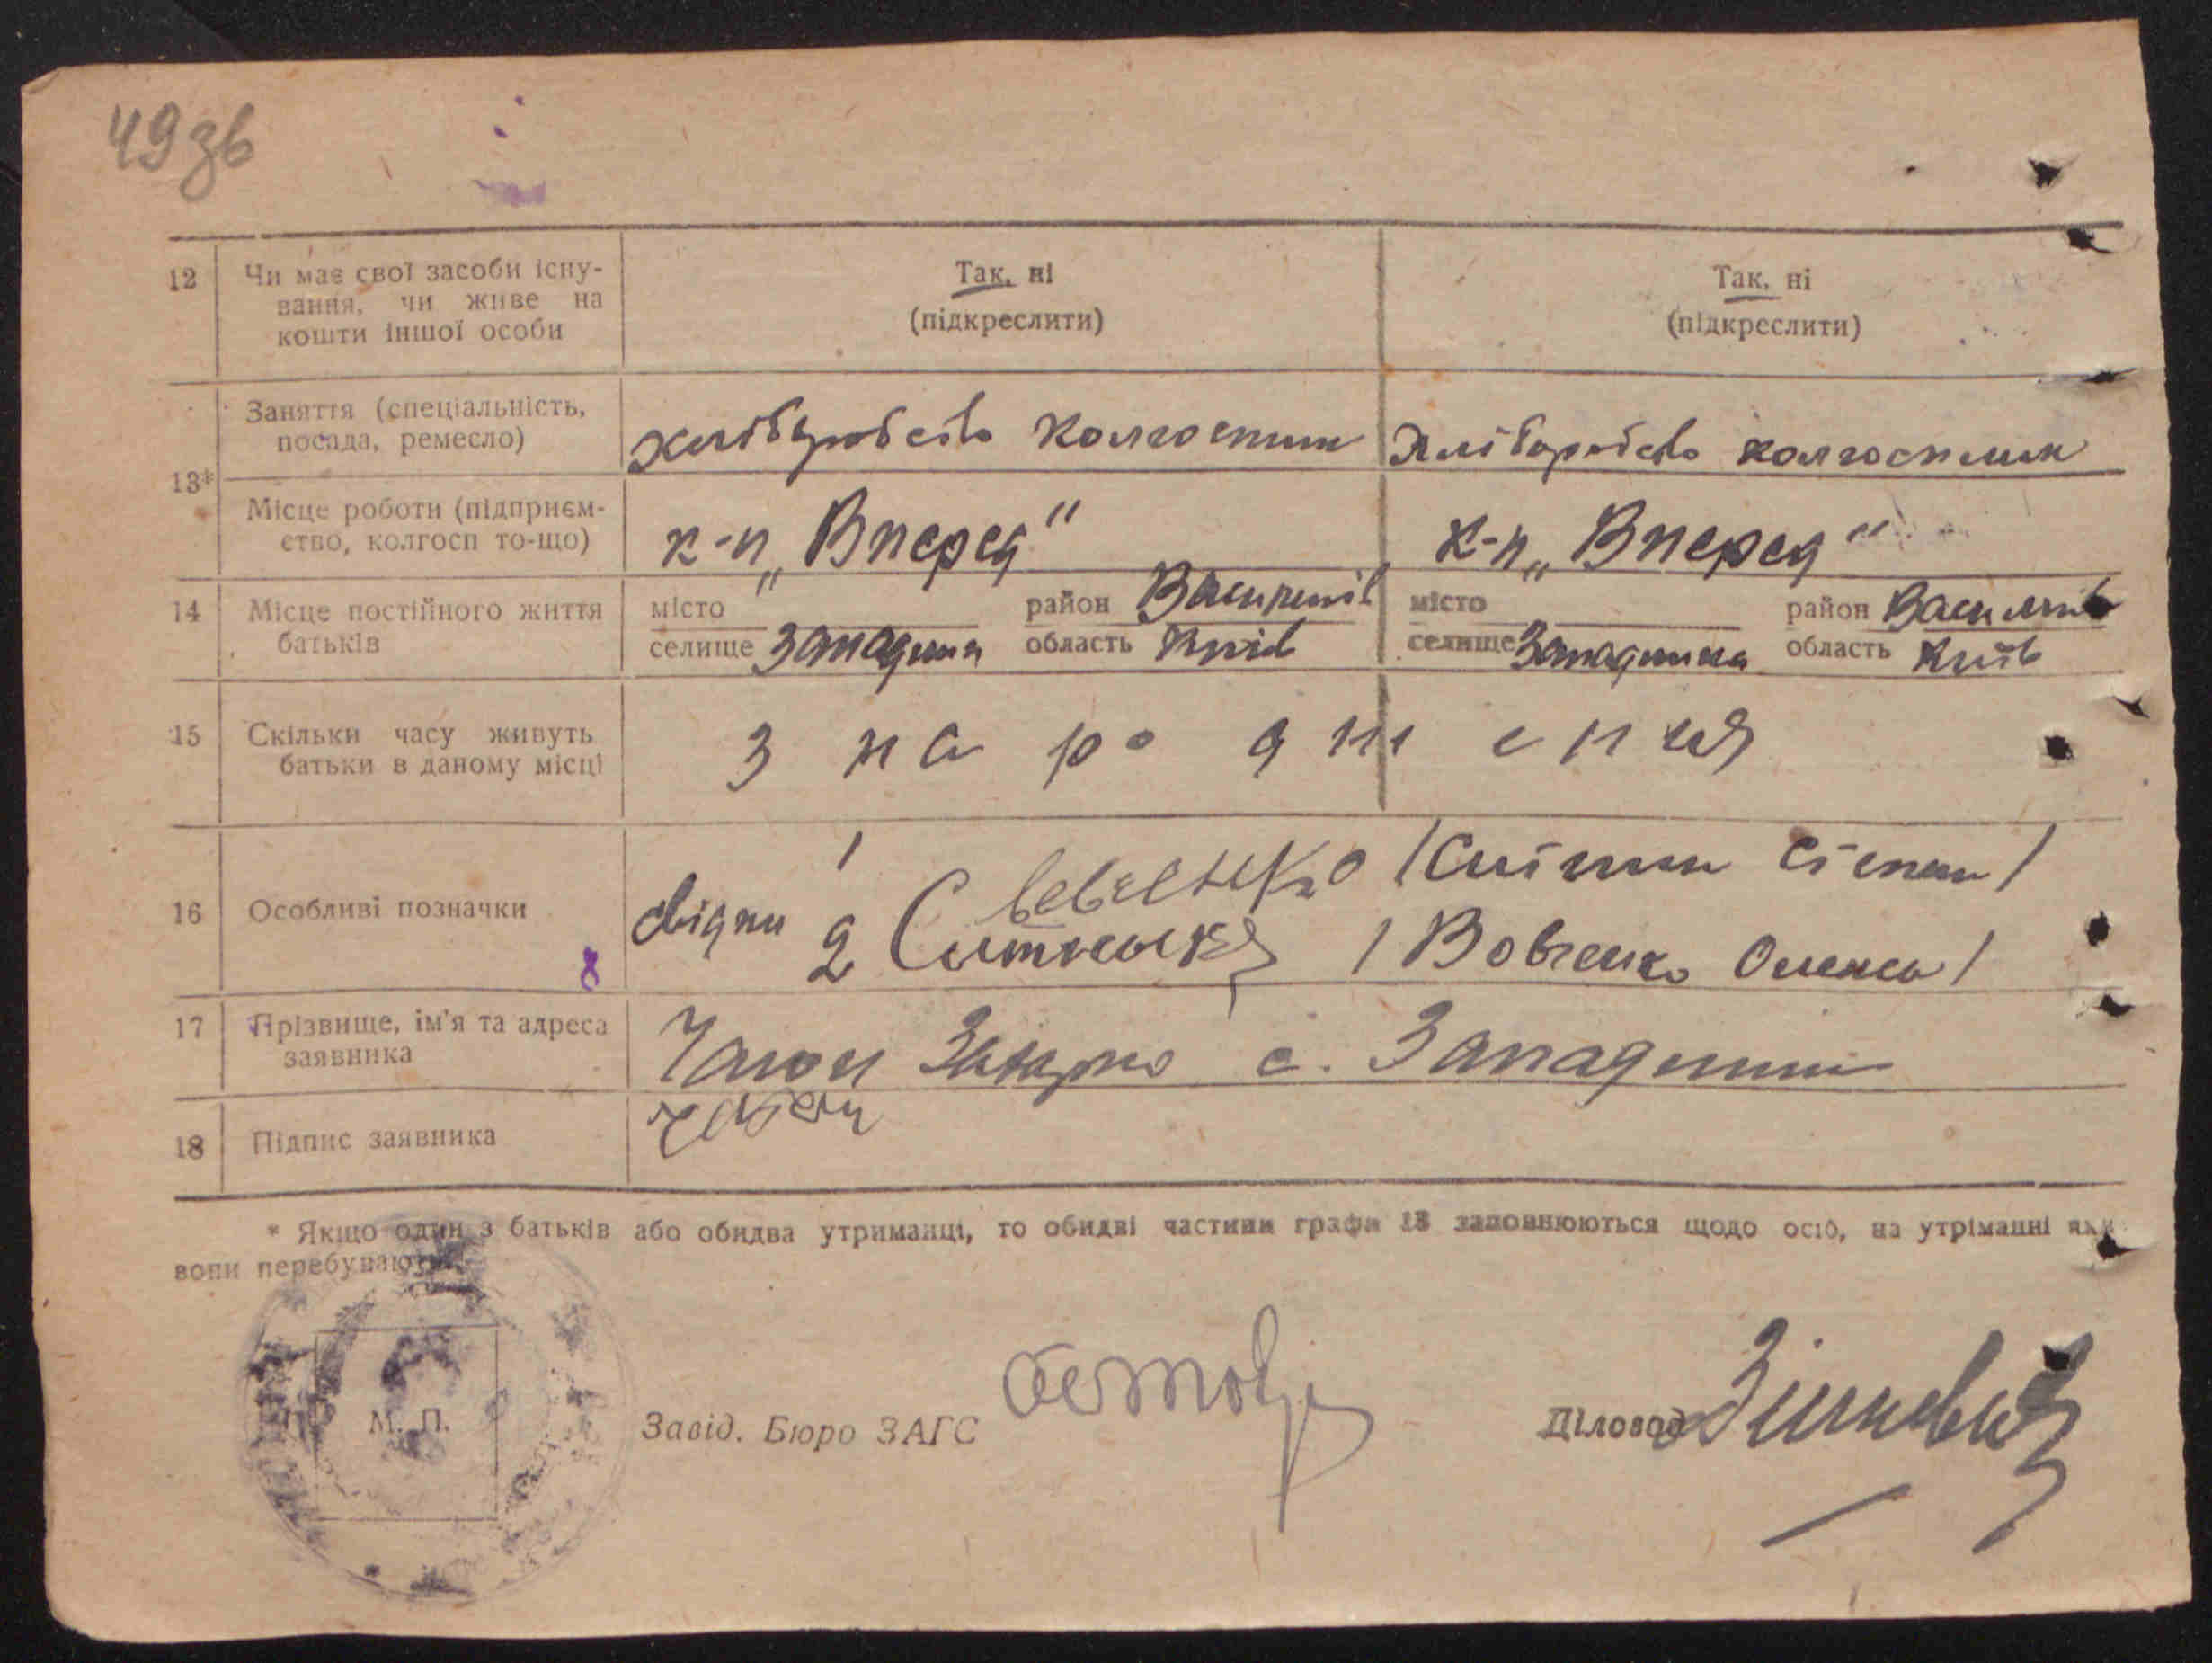 49зв
12 Чи має свої засоби існу- Так, ні Так, ні
вання, чи живе на (підкреслити) (підкреслити)
кошти іншої особи
Заняття (спеціальність,
посада, ремесло) хліборобство колгоспник хліборобство колгоспник
13*
Місце роботи (підприєм-
ство, колгосп то-що) к-п „Вперед" к-п „Вперед"
14 Місце постійного життя місто район Василькив місто район Васильків
батьків селище Западинка область Київ селище Западинка область Київ
15 Скільки часу живуть з народження
батьки в даному місці
1 /Степан/
16 Особливі позначки свідки 2 /Вовченко Олекса/
17 Прізвище, ім'я та адреса
заявника Захарко с. Западинка
18 Підпис заявника
* Якщо один з батьків або обидва утриманці, то обидві частини графи 13 заповнюються щодо осіб, на утріманні яки
вони перебувають.
М. П. Завід. Бюро ЗАГС Діловод